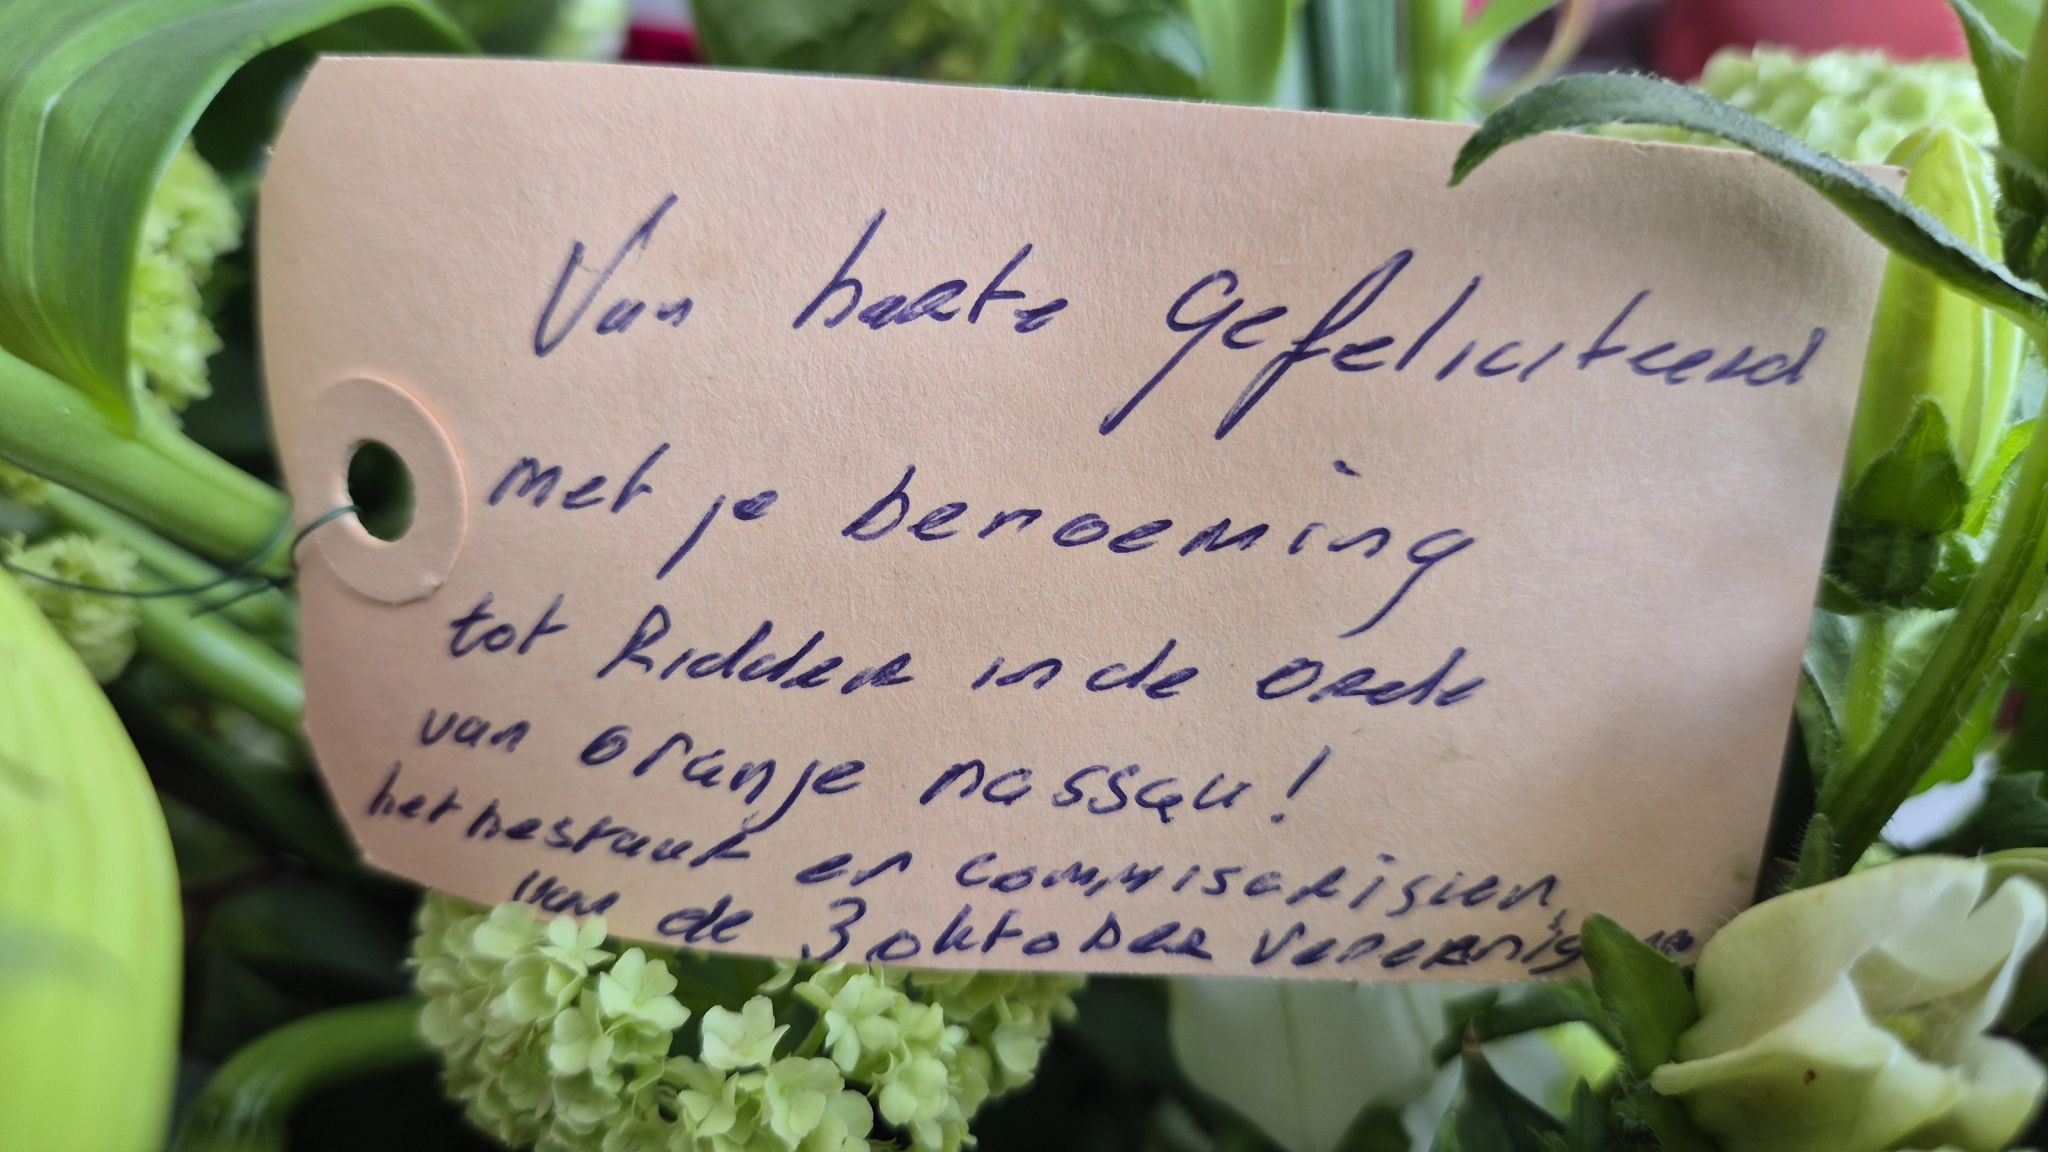 Van harte gefeliciteerd
met je benoeming
tot Ridder in de orde
van oranje nassau!
het bestuur en commisarissen
van de 3 oktober vereeniging